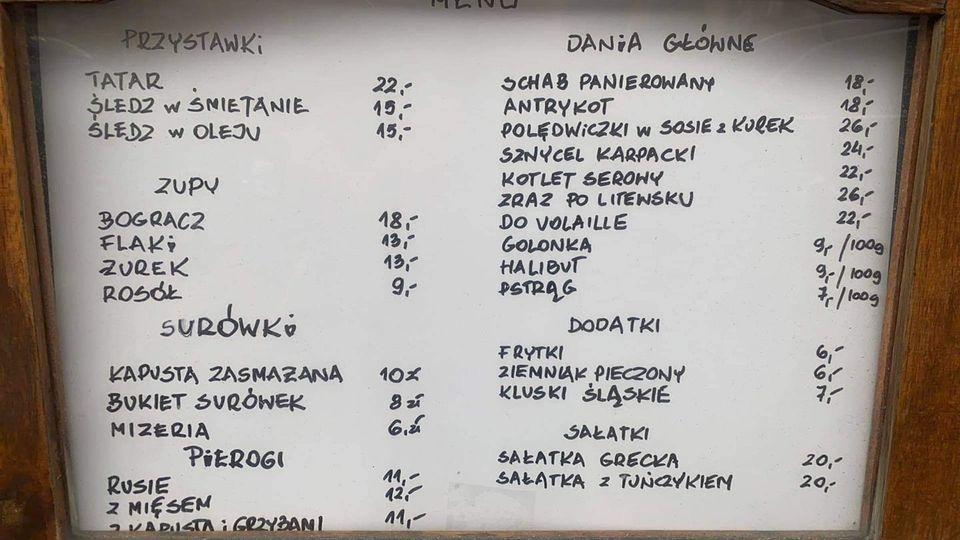 MENU
PRZYSTAWKI
TATAR 22,-
ŚLEDZ W ŚMIETANIE 15,-
ŚLEDZ W OLEJU 15,-
ZUPY
BOGRACZ 18,-
FLAKI 13,-
ŻUREK 13,-
ROSÓŁ 9,-
SURÓWKI
KAPUSTA ZASMAŻANA 10 zł
BUKIET SURÓWEK 8 zł
MIZERIA 6,zł
PIEROGI
RUSIE 11,-
Z MIĘSEM 12,-
Z KAPUSTĄ i GRZYBAMI 11,-
DANIA GŁÓWNE
SCHAB PANIEROWANY 18,-
ANTRYKOT 18,-
POLĘDWICZKI W SOSIE Z KUREK 26,-
SZNYCEL KARPACKI 24,-
KOTLET SEROWY 22,-
ZRAZ PO LITEWSKU 26,-
DO VOLAILLE 22,-
GOLONKA 9,-/100g
HALIBUT 9,-/100g
PSTRĄG 7,-/100g
DODATKI
FRYTKI 6,-
ZIEMNIAK PIECZONY 6,-
KLUSKI ŚLĄSKIE 7,-
SAŁATKI
SAŁATKA GRECKA 20,-
SAŁATKA Z TUŃCZYKIEM 20,-